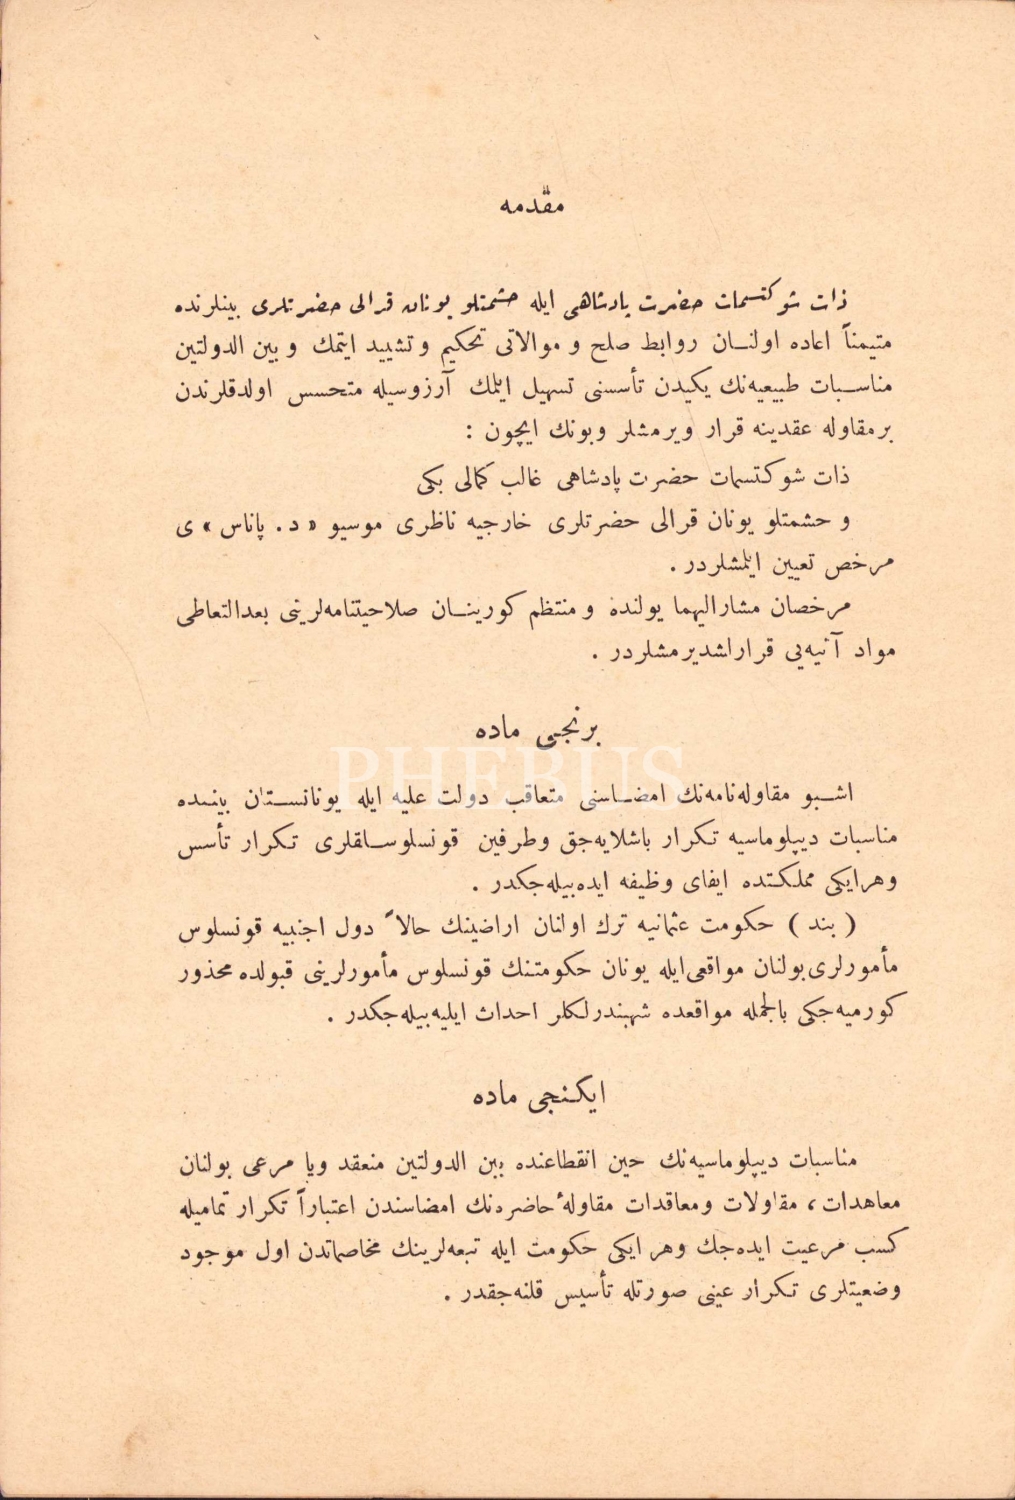 مقدمه
ذات شوكتسمات حضرت پادشاهی ایله حشمتلو یونان قرالی حضرتلری بینلرنده
متیمناً اعاده اولنـان روابط صلح و موالاتی تحكیم و تشیید ایتمك و بین الدولتین
مناسـبات طبیعیه‌نك یكیدن تأسسنی تسهیل ایلمك آرزوسیله متحسس اولدقلرندن
برمقاوله عقدینه قرار ویرمشلر وبونك ایچون :
ذات شوكتسمات حضرت پادشاهی غالب كمالی بكی
و حشمتلو یونان قرالی حضرتلری خارجیه ناظری موسیو « د . پاناس » ی
مرخص تعیین ایلمشلردر .
مرخصان مشارالیهما یولنده و منتظم كورینـان صلاحیتنامه‌لرینی بعدالتعاطی
مواد آتیه‌یی قراراشدیرمشلردر .
برنجی ماده
PHEBUS
اشـبو مقاوله‌نامه‌نك امضـاسنی متعاقب دولت علیه ایله یونانسـتان بیننده
مناسبات دیپلوماسیه تكرار باشلایه‌جق وطرفین قونسلوسـلقلری تكرار تأسس
وهرایكی مملكتده ایفای وظیفه ایده‌بیله‌جكدر .
( بند ) حكومت عثمانیه ترك اولنان اراضینك حالاً دول اجنبیه قونسلوس
مأمورلری‌بولنان مواقعی‌ایله یونان حكومتنك قونسلوس مأمورلرینی قبولده محذور
كورمیه‌جكی بالجمله مواقعده شهبندرلكلر احداث ایلیه‌بیله‌جكدر .
ایكنجی ماده
مناسبات دیپلوماسیه‌نك حین انقطاعنده بین الدولتین منعقد ویا مرعی بولنان
معاهدات ، مقاولات ومعاقدات مقاولهٔ حاضره‌نك امضاسندن اعتباراً تكرار تمامیله
كسب مرعیت ایده‌جك وهر ایكی حكومت ایله تبعه‌لرینك مخاصماتدن اول موجود
وضعیتلری تكرار عینی صورتله تأسیس قلنه‌جقدر .